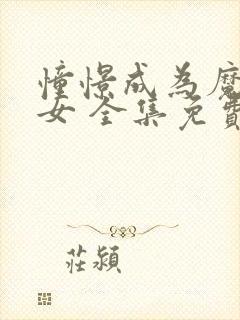 憧憬成為魔
女 全集免費
莊潁